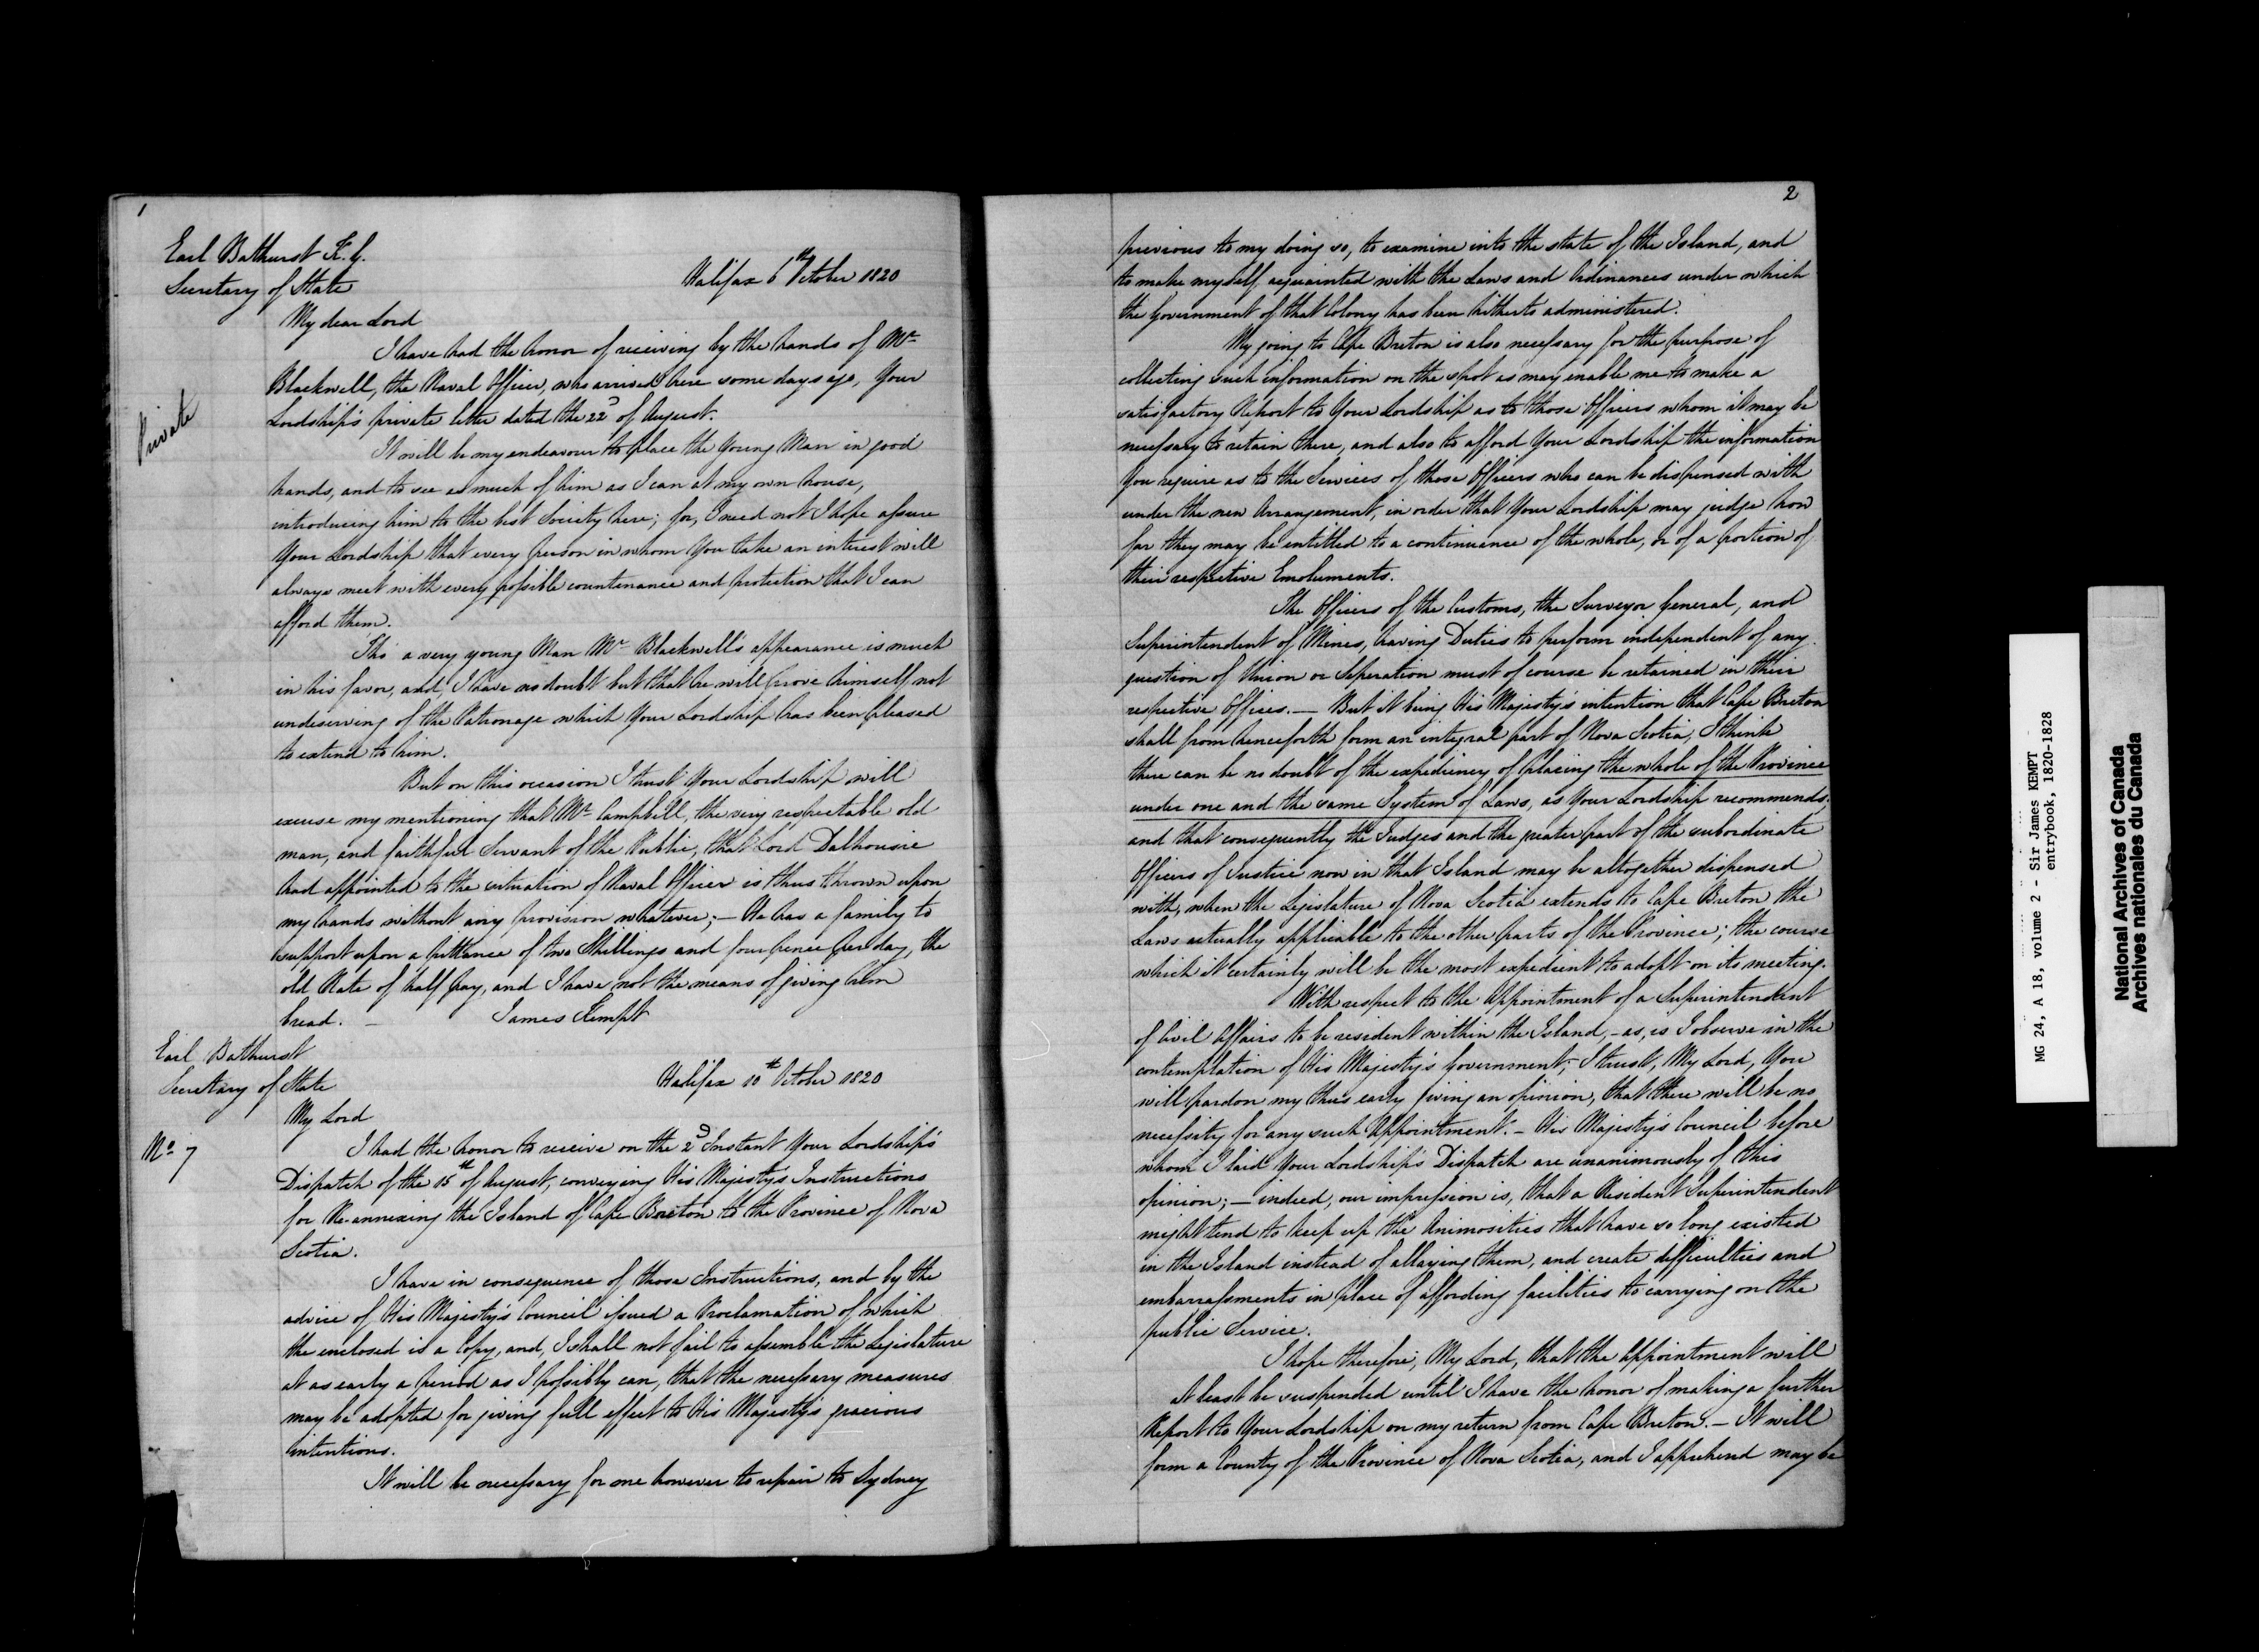 1
Earl Bathurst K. G.
Secretary of State
Halifax 6th October 1820
My dear Lord
I have had the honor of receiving by the hands of Mr
Blackwell, the Naval Officer, who arrived here some days ago, Your
Private
Lordship's private letter dated the 22d of August.
It will be my endeavour to place the Young Man in good
hands, and to see as much of him as I can at my own house,
introducing him to the best Society here; for, I need not I hope assure
Your Lordship that every person in whom You take an interest will
always meet with every possible countenance and protection that I can
afford them.
Tho' a very young Man Mr Blackwell's appearance is much
in his favor, and, I have no doubt but that he will prove himself not
undeserving of the Patronage which Your Lordship has been pleased
to extend to him.
But on this occasion I trust Your Lordship will
excuse my mentioning that Mr Campbell, the very respectable old
man, and faithful Servant of the Public, that Lord Dalhousie
had appointed to the situation of Naval Officer is thus thrown upon
my hands without any provision whatever; — He has a family to
support upon a pittance of two Shillings and four pence per day, the
old Rate of half pay, and I have not the means of giving him
bread. — James Kempt
Earl Bathurst
Secretary of State
Halifax 10th October 1820
My Lord
No 7
I had the honor to receive on the 2d Instant Your Lordship's
Dispatch of the 15th of August, conveying His Majesty's Instructions
for Re-annexing the Island of Cape Breton to the Province of Nova
Scotia.
I have in consequence of those Instructions, and by the
advice of His Majesty's Council issued a Proclamation of which
the enclosed is a Copy, and, I shall not fail to assemble the Legislature
at as early a period as I possibly can, that the necessary measures
may be adopted for giving full effect to His Majesty's gracious
intentions.
It will be necessary for me however to repair to Sydney
2
previous to my doing so, to examine into the state of the Island, and
to make myself acquainted with the Laws and Ordinances under which
the Government of that Colony has been hitherto administered.
My going to Cape Breton is also necessary for the purpose of
collecting such information on the spot as may enable me to make a
satisfactory Report to Your Lordship as to those Officers whom it may be
necessary to retain there, and also to afford Your Lordship the information
You require as to the Services of those Officers who can be dispensed with
under the new Arrangement, in order that Your Lordship may judge how
far they may be entitled to a continuance of the whole, or of a portion of
their respective Emoluments.
The Officers of the Customs, the Surveyor General, and
Superintendent of Mines, having Duties to perform independent of any
question of Union or Seperation must of course be retained in their
respective Offices. — But it being His Majesty's intention that Cape Breton
shall from henceforth form an integral part of Nova Scotia, I think
there can be no doubt of the expediency of placing the whole of the Province
under one and the same System of Laws, as Your Lordship recommends,
and that consequently the Judges and the greater part of the subordinate
Officers of Justice now in that Island may be altogether dispensed
with, when the Legislature of Nova Scotia extends to Cape Breton the
Laws actually applicable to the other parts of the Province; the course
which it certainly will be the most expedient to adopt on its meeting.
With respect to the Appointment of a Superintendant
of Civil Affairs to be resident within the Island, – as, is I observe in the
contemplation of His Majesty's Government, – I trust, My Lord, You
will pardon my thus early giving an opinion, that there will be no
necessity for any such Appointment. – His Majesty's Council before
whom I laid Your Lordship's Dispatch are unanimously of this
opinion; – indeed, our impression is, that a Resident Superintendent
might tend to keep up the Animosities that have so long existed
in the Island instead of allaying them, and create difficulties and
embarrassments in place of affording facilities to carrying on the
public Service.
I hope therefore, My Lord, that the appointment will
at least be suspended until I have the honor of making a further
Report to Your Lordship on my return from Cape Breton. – It will
form a County of the Province of Nova Scotia, and I apprehend may be
MG 24, A 18, volume 2 - Sir James KEMPT
entrybook, 1820-1828
National Archives of Canada
Archives nationales du Canada